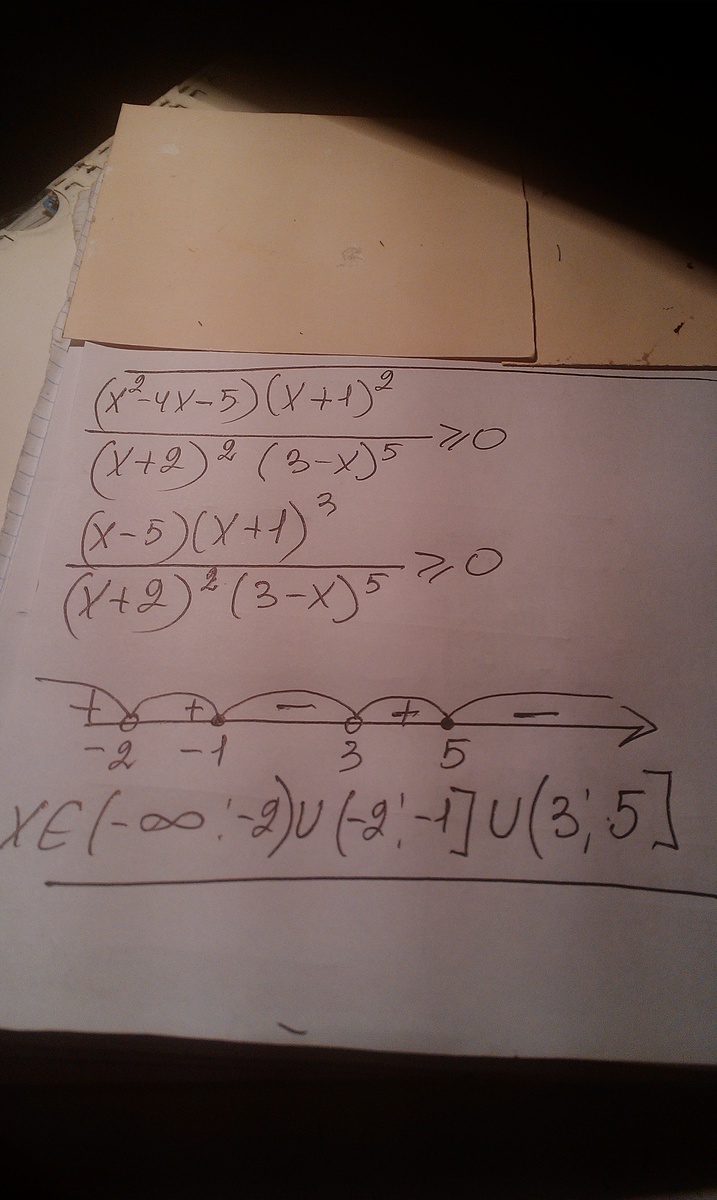 (x²-4x-5)(x+1)²
(x+2)² (3-x)⁵ ⩾0
(x-5)(x+1)³
(x+2)² (3-x)⁵ ⩾0
+ + - + -
-2 -1 3 5
x∈(-∞;-2)∪(-2;-1]∪(3;5]